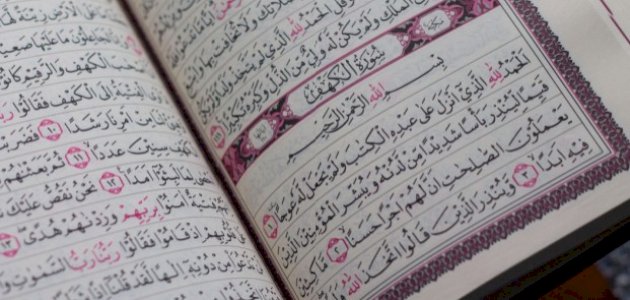 صَلَاتِكَ وَلَا تُخَافِتْ بِهَا
وَقُلِ الْحَمْدُ لِلَّهِ الَّذِي لَمْ يَتَّخِذْ وَلَدًا
الْمُلْكِ وَلَمْ يَكُنْ لَهُ وَلِيٌّ مِنَ الذُّلِّ وَكَبِّرْهُ تَكْبِيرًا
سُورَةُ الْكَهْفِ
بِسْمِ اللَّهِ الرَّحْمَٰنِ الرَّحِيمِ
الْحَمْدُ لِلَّهِ الَّذِي أَنْزَلَ عَلَىٰ عَبْدِهِ الْكِتَٰبَ وَلَمْ يَجْعَلْ لَهُ عِوَجًا ١
قَيِّمًا لِيُنْذِرَ بَأْسًا شَدِيدًا مِنْ لَدُنْهُ وَيُبَشِّرَ الْمُؤْمِنِينَ الَّذِينَ
يَعْمَلُونَ الصَّٰلِحَٰتِ أَنَّ لَهُمْ أَجْرًا حَسَنًا ٢ مَاكِثِينَ
فِيهِ أَبَدًا ٣ وَيُنْذِرَ الَّذِينَ قَالُوا اتَّخَذَ اللَّهُ
عَلَى الْأَرْضِ زِينَةً
مَا عَلَيْهَا صَعِيدًا
الْكَهْفِ وَالرَّقِيمِ كَانُوا
الْفِتْيَةُ إِلَى الْكَهْفِ فَقَالُوا رَبَّنَا
مِنْ أَمْرِنَا رَشَدًا ١٠ فَضَرَبْنَا
سِنِينَ عَدَدًا ١١ ثُمَّ بَعَثْنَٰهُمْ
لِمَا لَبِثُوا أَمَدًا ١٢ نَحْنُ نَقُصُّ عَلَيْكَ
آمَنُوا بِرَبِّهِمْ وَزِدْنَٰهُمْ هُدًى ١٣
إِذْ قَامُوا فَقَالُوا رَبُّنَا رَبُّ السَّمَٰوَٰتِ
مِنْ دُونِهِ إِلَٰهًا لَقَدْ قُلْنَا إِذًا